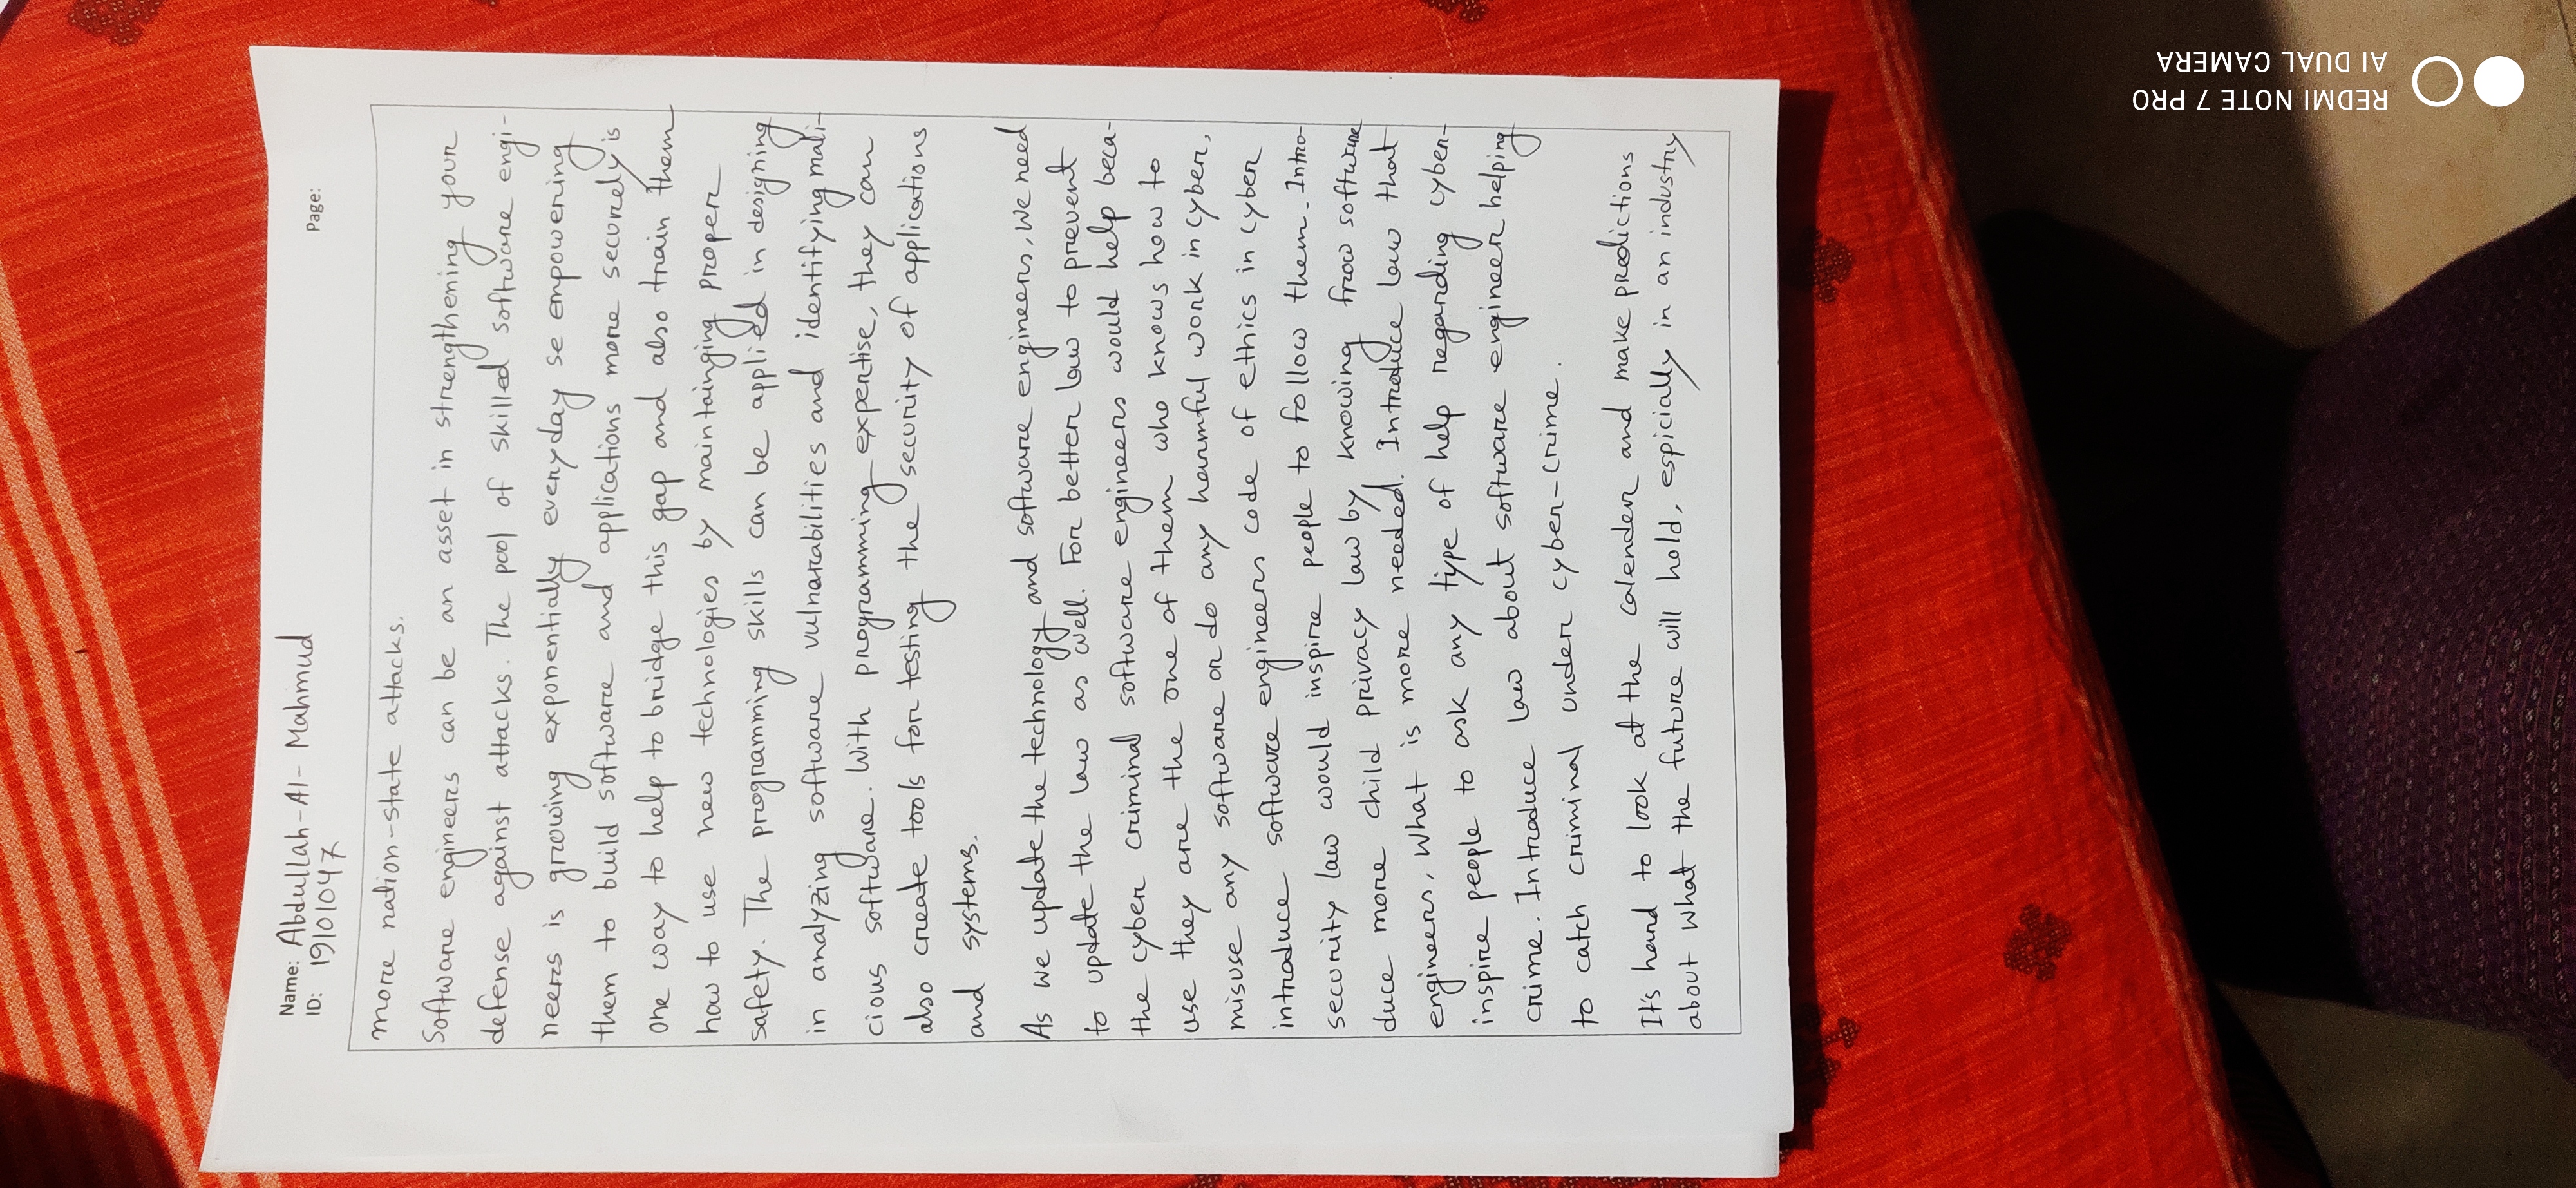 Name: Abdullah-Al-Mahmud
ID: 19101047
Page:
more nation-state attacks.
Software engineers can be an asset in strengthening your
defense against attacks. The pool of skilled software engi-
neers is growing exponentially everyday se empowering
them to build software and applications more securedly is
one way to help to bridge this gap and also train them
how to use new technologies by maintainging proper
safety. The programming skills can be applied in designing
in analyzing software vulnarabilities and identifying mali-
cious software. With programming expertise, they can
also create tools for testing the security of applications
and systems.
As we update the technology and software engineers, we need
to update the law as well. For better law to prevent
the cyber criminal software engineers would help beca-
use they are the one of them who knows how to
misuse any software or do any harmful work in cyber,
introduce software engineers code of ethics in cyber
security law would inspire people to follow them. Intro-
duce more child privacy law by knowing from software
engineers, what is more needed. Introduce law that
inspire people to ask any type of help regarding cyber-
crime. Introduce law about software engineer helping
to catch criminal under cyber-crime.
It's hard to look at the calender and make predictions
about what the future will hold, espicially in an industry
REDMI NOTE 7 PRO
AI DUAL CAMERA